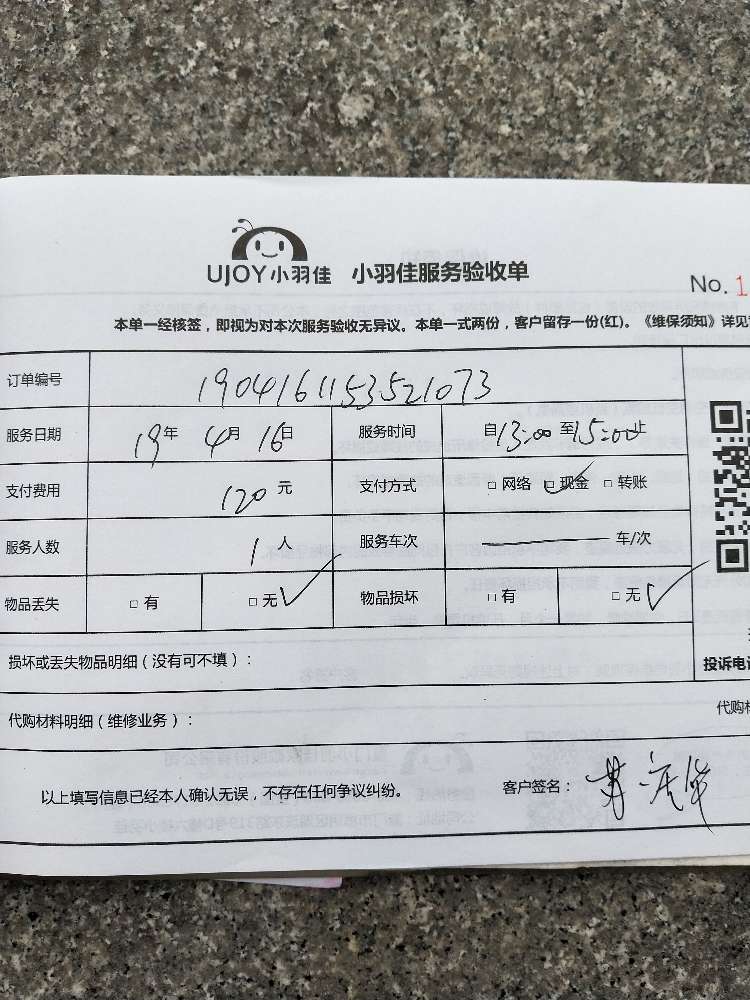 UJOY小羽佳 小羽佳服务验收单
No. 1
本单一经核签，即视为对本次服务验收无异议。本单一式两份，客户留存一份(红)。《维保须知》详见
订单编号 1904161153521073
服务日期 19年 4月 16日 服务时间 自13:00至15:00止
支付费用 120元 支付方式 □ 网络 ☑ 现金 □ 转账
服务人数 1人 服务车次 车/次
物品丢失 □ 有 □ 无✓ 物品损坏 □ 有 □ 无✓
损坏或丢失物品明细（没有可不填）：
投诉电
代购材料明细（维修业务）：
代购
以上填写信息已经本人确认无误，不存在任何争议纠纷。 客户签名：